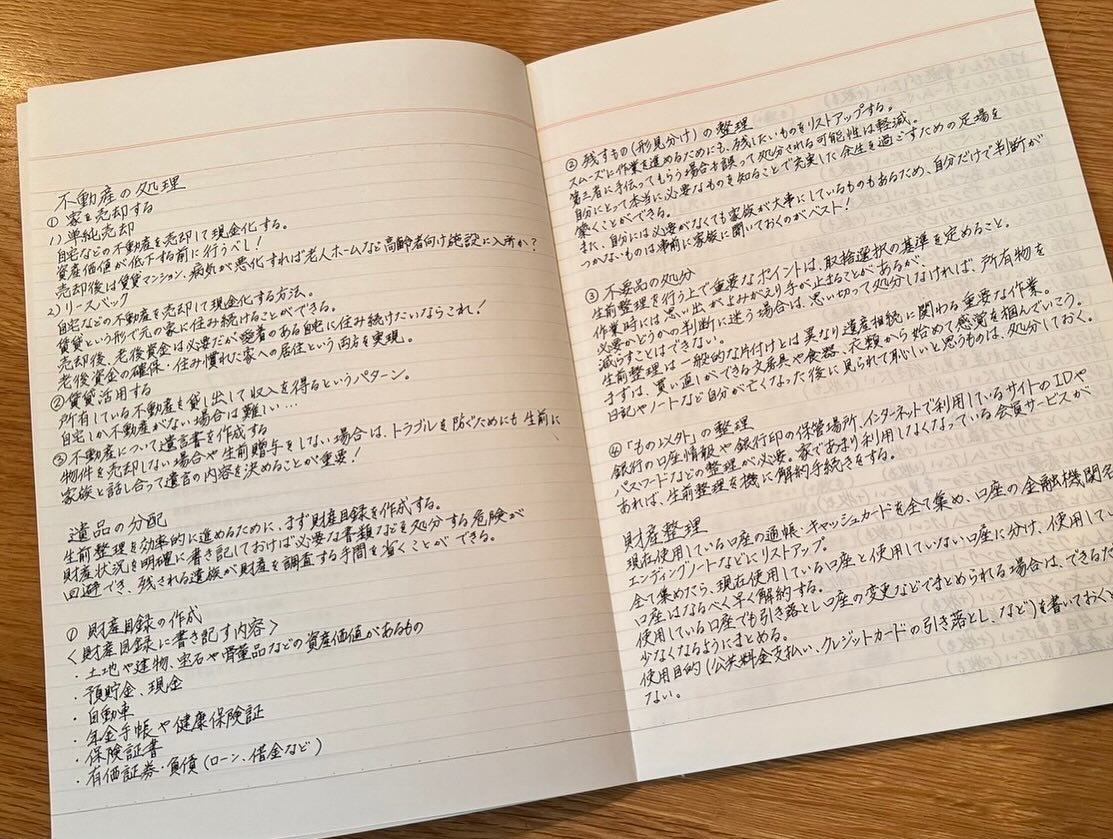 不動産の処理
① 家を売却する
1) 単純売却
自宅などの不動産を売却して現金化する。
資産価値が低下する前に行うべし!
売却後は賃貸マンション、病気が悪化すれば老人ホームなど高齢者向け施設に入所か?
2) リースバック
自宅などの不動産を売却して現金化する方法。
賃貸という形で元の家に住み続けることができる。
売却後、老後資金は必要だが愛着のある自宅に住み続けたいならこれ!
老後資金の確保・住み慣れた家への居住という両方を実現。
② 賃貸活用する
所有している不動産を貸し出して収入を得るというパターン。
自宅しか不動産がない場合は難しい…
③ 不動産について遺言書を作成する
物件を売却しない場合や生前贈与をしない場合は、トラブルを防ぐためにも生前に、
家族と話し合って遺言の内容を決めることが重要!
遺品の分配
生前整理を効率的に進めるために、まず財産目録を作成する。
財産状況を明確に書き記しておけば必要な書類などを処分する危険が
回避でき、残される遺族が財産を調査する手間を省くことができる。
① 財産目録の作成
<財産目録に書き記す内容>
・土地や建物、宝石や骨董品などの資産価値があるもの
・預貯金、現金
・自動車
・年金手帳や健康保険証
・保険証書
・有価証券・負債(ローン、借金など)
② 残すもの(形見分け)の整理
スムーズに作業を進めるためにも、残したいものをリストアップする。
第三者に手伝ってもらう場合も誤って処分される可能性は軽減。
自分にとって本当に必要なものを知ることで充実した余生を過ごすための足場を
築くことができる。
また、自分には必要がなくても家族が大事にしているものもあるため、自分だけで判断が
つかないものは事前に家族に聞いておくのがベスト!
③ 不要品の処分
生前整理を行う上で重要なポイントは、取捨選択の基準を定めること。
作業時には思い出がよみがえり手が止まることがあるが、
必要かどうかの判断に迷う場合は、思い切って処分しなければ、所有物を
減らすことはできない。
生前整理は一般的な片付けとは異なり遺産相続に関わる重要な作業。
まずは、買い直しができる文房具や食器、衣類から始めて感覚を掴んでいこう。
日記やノートなど自分が亡くなった後に見られて恥しいと思うものは、処分しておく。
④ 「もの以外」の整理
銀行の口座情報や銀行印の保管場所、インターネットで利用しているサイトのIDや
パスワードなどの整理が必要。家であまり利用しなくなっている会員サービスが
あれば、生前整理を機に解約手続きをする。
財産整理
現在使用している口座の通帳、キャッシュカードを全て集め、口座の金融機関名
エンディングノートなどにリストアップ。
全て集めたら、現在使用している口座と使用していない口座に分け、使用してい
口座はなるべく早く解約する。
使用している口座でも引き落とし口座の変更などでまとめられる場合は、できるだ
少なくなるようにまとめる。
使用目的(公共料金支払い、クレジットカードの引き落とし、など)を書いておくと
ない。